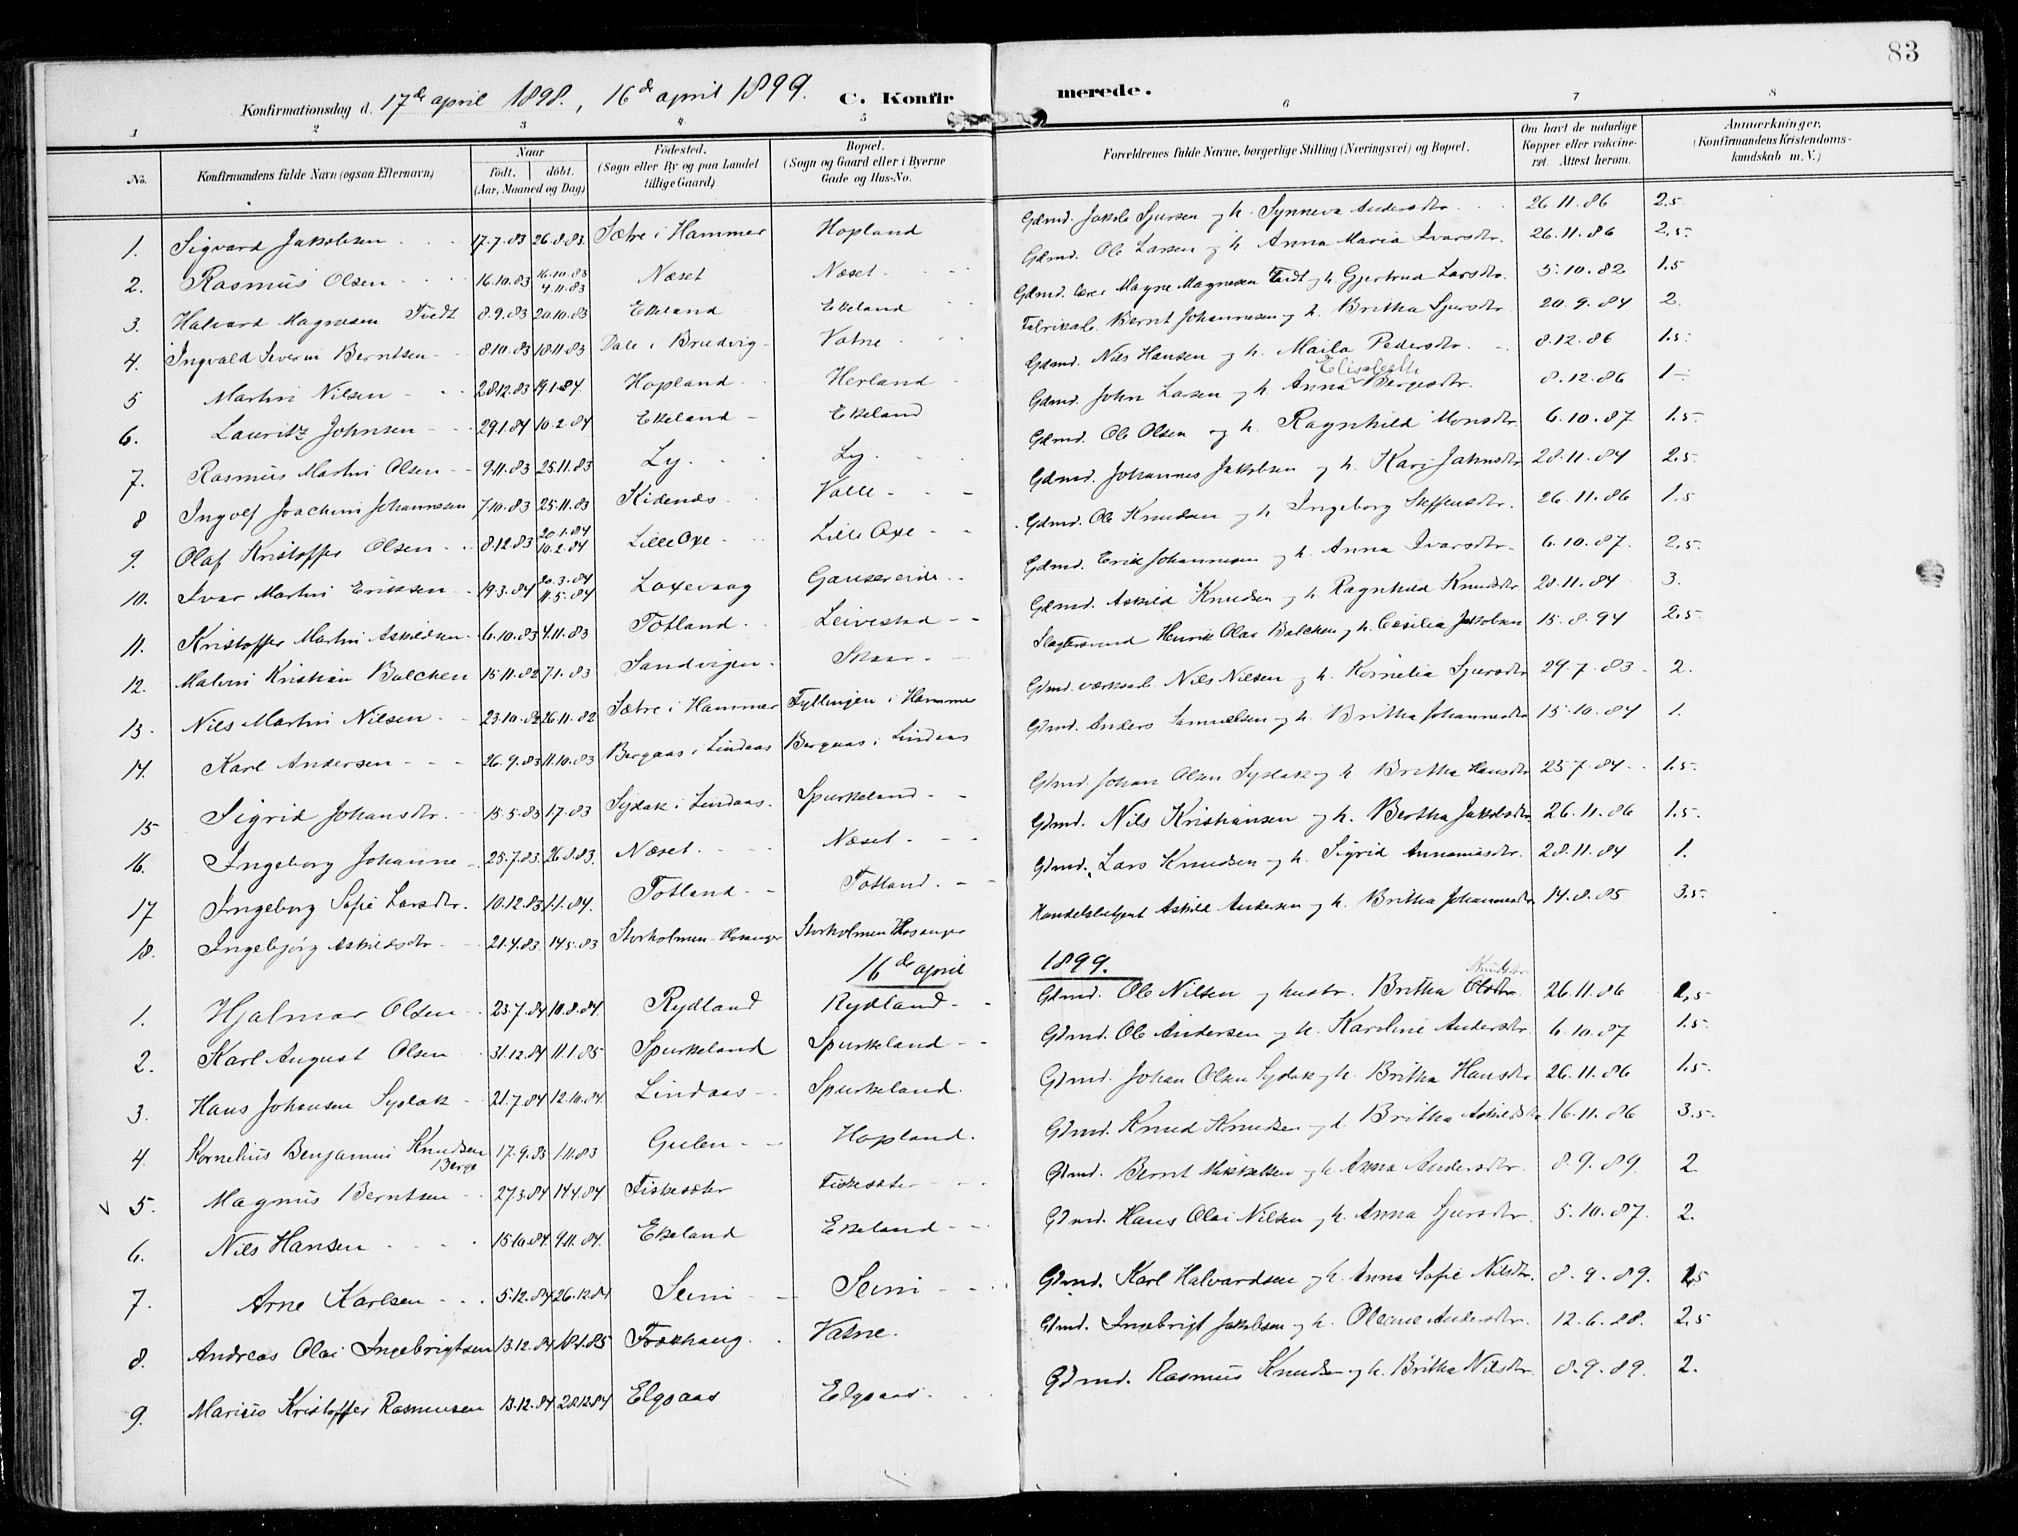 83
Konfirmationsdag d. 17de april 1898., 16de april 1899. C. Konfirmerede.
1 2 3 4 5 6 7 8
No. Konfirmandens fulde Navn (ogsaa Efternavn) Naar født, døbt. (Aar, Maaned og Dag) Fødested. (Sogn eller By og paa Landet tillige Gaard) Bopæl. (Sogn og Gaard eller i Byerne Gade og Hus-No. Forældrenes fulde Navne, borgerlige Stilling (Næringsvei) og Bopæl. Om havt de naturlige Kopper eller vakcineret. Attest herom. Anmærkninger. (Konfirmandens Kristendomskundskab m. V.)
1. Sigvard Jakobsen 17.7.83 26.8.83. Sætre i Hammer Hopland Gdmd. Jakob Sjursen og h. Synneva Andersdtr. 26.11.86 2.5
2. Rasmus Olsen 16.10.83 16.10.83 4.11.83 Næset Næset Gdmd. Ole Larsen og h. Anna Maria Ivarsdtr. 26.11.86 2.5
3. Halvard Magnesen Tvedt 8.9.83 20.10.83 Ekeland Ekeland Gdmd. Magne Magnesen Tvedt og h. Gjertrud Larsdtr. 5.10.82 1.5
4. Ingvald Severin Berntsen 8.10.83 18.11.83 Dale i Bruvig Vatne Fabrikarb. Bernt Johannesen og h. Britha Sjursdtr. 20.9.84 2.
5 Martin Nilsen 28.12.83 19.1.84 Hopland Herland Gdmd. Nils Hansen og h. Maila Pedersdtr. 8.12.86 1.5
6. Lauritz Johnsen 29.1.84 10.2.84 Ekeland Ekeland Gdmd. John Larsen og h. Anna Elisabeth Børgesdtr. 8.12.86 1
7. Rasmus Martin Olsen 9.11.83 25.11.83 Ly. Ly. Gdmd. Ole Olsen og h. Ragnhild Monsdtr 6.10.87 1.5
8 Ingolf Joachim Johannesen 7.10.83 25.11.83 Kidenæs Valle Gdmd. Johannes Jakobsen og h. Kari Jahnsdtr 28.11.84 2.5
9. Olaf Kristoffer Olsen 8.12.83 20.1.84 10.2.84 Lille Oxe Lille Oxe Gdmd. Ole Knudsen og h. Ingeborg Steffensdtr. 26.11.86 1.5
10. Ivar Martin Eriksen 19.3.84 20.3.84 11.5.84 Loxevaag Gausereide Gdmd. Erik Johannesen og h. Anna Ivarsdtr. 6.10.87. 2.5
11. Kristoffer Martin Askildsen 6.10.83 4.11.83 Totland Leivestad Gdmd. Askild Knudsen og h. Ragnhild Knudsdtr 28.11.84 3.
12. Malvin Kristian Balchen 15.11.82 7.1.83 Sandvigen Skaar Slagtersvend Henrik Olai Balchen og h. Cesilia Jakobsen 15.8.94 2.5
13. Nils Martin Nilsen 23.10.82 26.11.82 Sætre i Hammer Fyllingen i Hammer Gdmd. værksarb. Nils Nilsen og h. Kornelia Sjursdtr 29.7.83 2.
14. Karl Andersen 26.9.83 11.10.83 Bergaas i Lindaas Bergaas i Lindaas Gdmd. Anders Samuelsen og h. Britha Johannesdtr 15.10.84 1.
15 Sigrid Johansdtr. 15.5.83 1.7.83 Syslak i Lindaas. Spurkeland Gdmd Johan Olsen Syslak og h. Britha Hansdtr 25.7.84 1.5
16. Ingeborg Johanne 25.7.83. 26.8.83. Næset. Næset. Gdmd. Nils Kristiansen og h. Bertha Jakobsdtr. 26.11.86 1.5
17 Ingeborg Sofie Larsdtr. 10.12.83 1.1.84. Totland Totland. Gdmd. Lars Knudsen og h. Sigrid Annaniasdtr. 28.11.84 1.
18. Ingebjørg Askildsdtr 21.4.83. 14.5.83 Storholmen Hosanger Storholmen Hosanger Handelsbetjent Askild Andersen og h. Britha Johannesdtr 14.8.85 3.5
16de april 1899.
1. Hjalmar Olsen 23.7.84 10.8.84. Rydland Rydland Gdmd. Ole Nilsen og hustr. Britha Olsdtr. Knudsdtr. 26.11.86 1.5
2. Karl August Olsen 31.12.84 11.1.85 Spurkeland Spurkeland Gdmd. Ole Andersen og h. Karoline Andersdtr 6.10.87 1.5
3. Hans Johansen Syslak 21.7.84 12.10.84. Lindaas Spurkeland. Gdmd. Johan Olsen Syslak og h. Britha Hansdtr 26.11.86 1.5
4. Kornelius Benjamin Knudsen Berge 17.9.83 1.11.83 Gulen Hopland. Gdmd. Knud Knudsen og h. Britha Askildsdtr 16.11.86 3.5
5. Magnus Berntsen 27.3.84 14.4.84. Fiskesæter Fiskesæter Gdmd. Bernt Mikkelsen og h. Anna Andersdtr. 8.9.89. 2
6. Nils Hansen 15.10.84 9.11.84. Ekeland Ekeland Gdmd. Hans Olai Nilsen og h. Anna Sjursdtr. 5.10.87. 2.
7. Arne Karlsen 5.12.84 26.12.84 Seim Seim Gdmd. Karl Halvardsen og h. Anna Sofie Nilsdtr. 8.9.89. 1.5
8. Andreas Olai Ingebrigtsen 13.12.84 18.1.85 Froshaug. Vatne. Gdmd. Ingebrigt Jakobsen og h. Oleane Andersdtr. 12.6.88. 2.5
9. Marius Kristoffer Rasmussen 13.12.84 28.12.84 Elgsaas Elgsaas Gdmd. Rasmus Knudsen og h. Britha Nilsdtr. 8.9.89. 2.